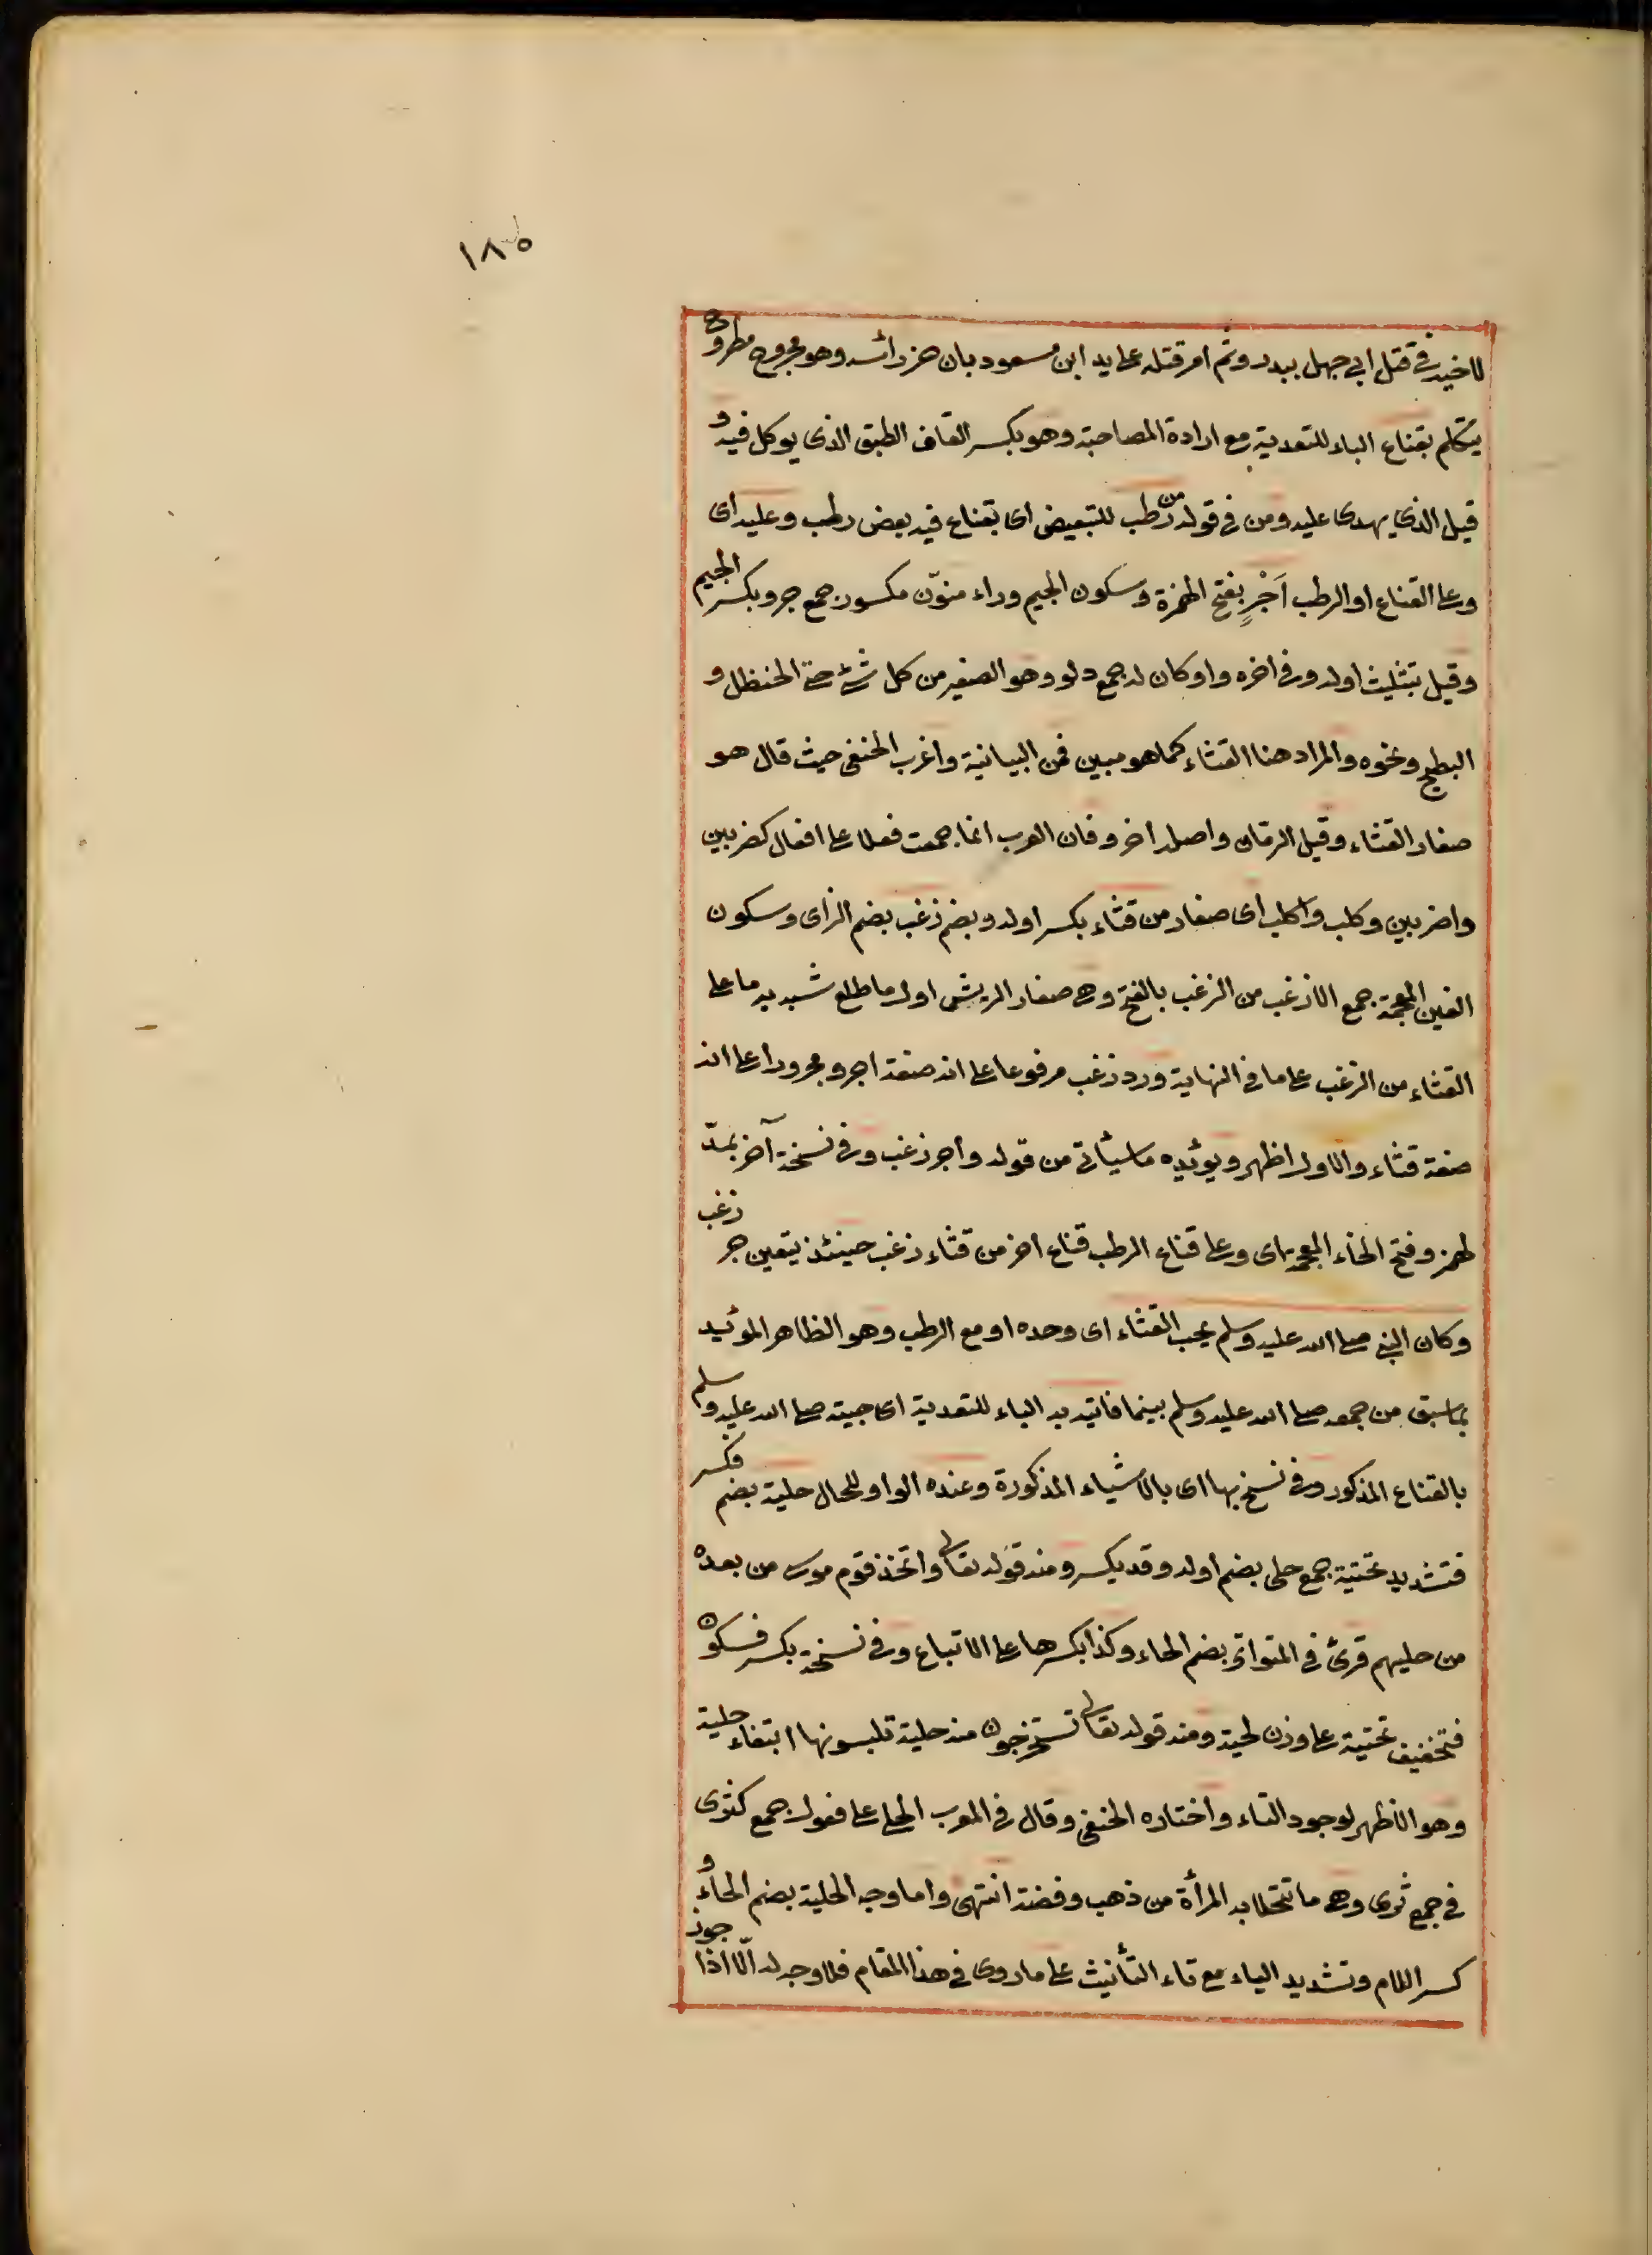 ١٨٥
لاخيه في قتل ابي جهل ببدر وتم امر قتله على يد ابن مسعود بان حز رأسه وهو مجروح مطروح
يتكلم بقناع الباء للتعدية مع ارادة المصاحبة وهو بكسر القاف الطبق الذى يوكل فيه و
قيل الذى يهدى عليه ومن فى قوله من رطب للتبعيض اى بقناع فيه بعض رطب وعليه اى
وعلى القناع او الرطب اَجْرٍ بفتح الهمزة وسكون الجيم وراء منوّن مكسور جمع جرو بكسر الجيم
وقيل بتثليث اوله وفى اخره واو كان له جمع دلو وهو الصغير من كل شئ حتى الحنظل و
البطيخ ونحوه والمراد هنا القثاء كما هو مبين فمن البيانية واغرب الحنفى حيث قال هو
صغار القثاء وقيل الرمان واصله اجرو فان العرب انما جمعت فعلا على افعال كضربين
واضربين وكلب واكلب اى صغار من قثاء بكسر اوله وبضم زغب بضم الزاى وسكون
الغين المعجمة جمع الازغب من الزغب بالفتح وهى صغار الريش اول ما طلع شبه به ما على
القثاء من الزغب على ما فى النهاية ورد زغب مرفوعا على انه صفة اجر ومجرورا على انه
صفة قثاء والاول اظهر ويوئيده ما سيأتى من قوله وأجر زغب وفى نسخة آخر بمدّ
لهمز وفتح الخاء المعجمة اى وعلى قناع الرطب قناع اخر من قثاء زغب حينئذ يتعين جر زغب
وكان النبى صلى الله عليه وسلم يحب القثاء اى وحده او مع الرطب وهو الظاهر الموئيد
بما سبق من جمعه صلى الله عليه وسلم بينهما فاتيته به الباء للتعدية اى جيئته صلى الله عليه وسلم
بالقناع المذكور وفى نسخ بها اى بالاشياء المذكورة وعنده الواو للحال حلية بضم فكسر
فتشديد تحتية جمع حلى بضم اوله وقد يكسر ومنه قوله تعالى واتخذ قوم موسى من بعده
من حليهم قرئ فى المتواتر بضم الحاء وكذا بكسرها على الاتباع وفى نسخة بكسر فسكون
فتخفيف تحتية على وزن لحية ومنه قوله تعالى تستخرجون منه حلية تلبسونها ابتغاء حلية
وهو الاظهر لوجود التاء واختاره الحنفى وقال فى المغرب الحلى على فعول جمع كثوى
فى جمع ثوى وهى ما تتحلا به المرأة من ذهب وفضة انتهى واما وجه الحلية بضم الحاء و
كسر اللام وتشديد الياء مع تاء التأنيث على ما روى فى هذا المقام فلا وجه له الّا اذا جوز